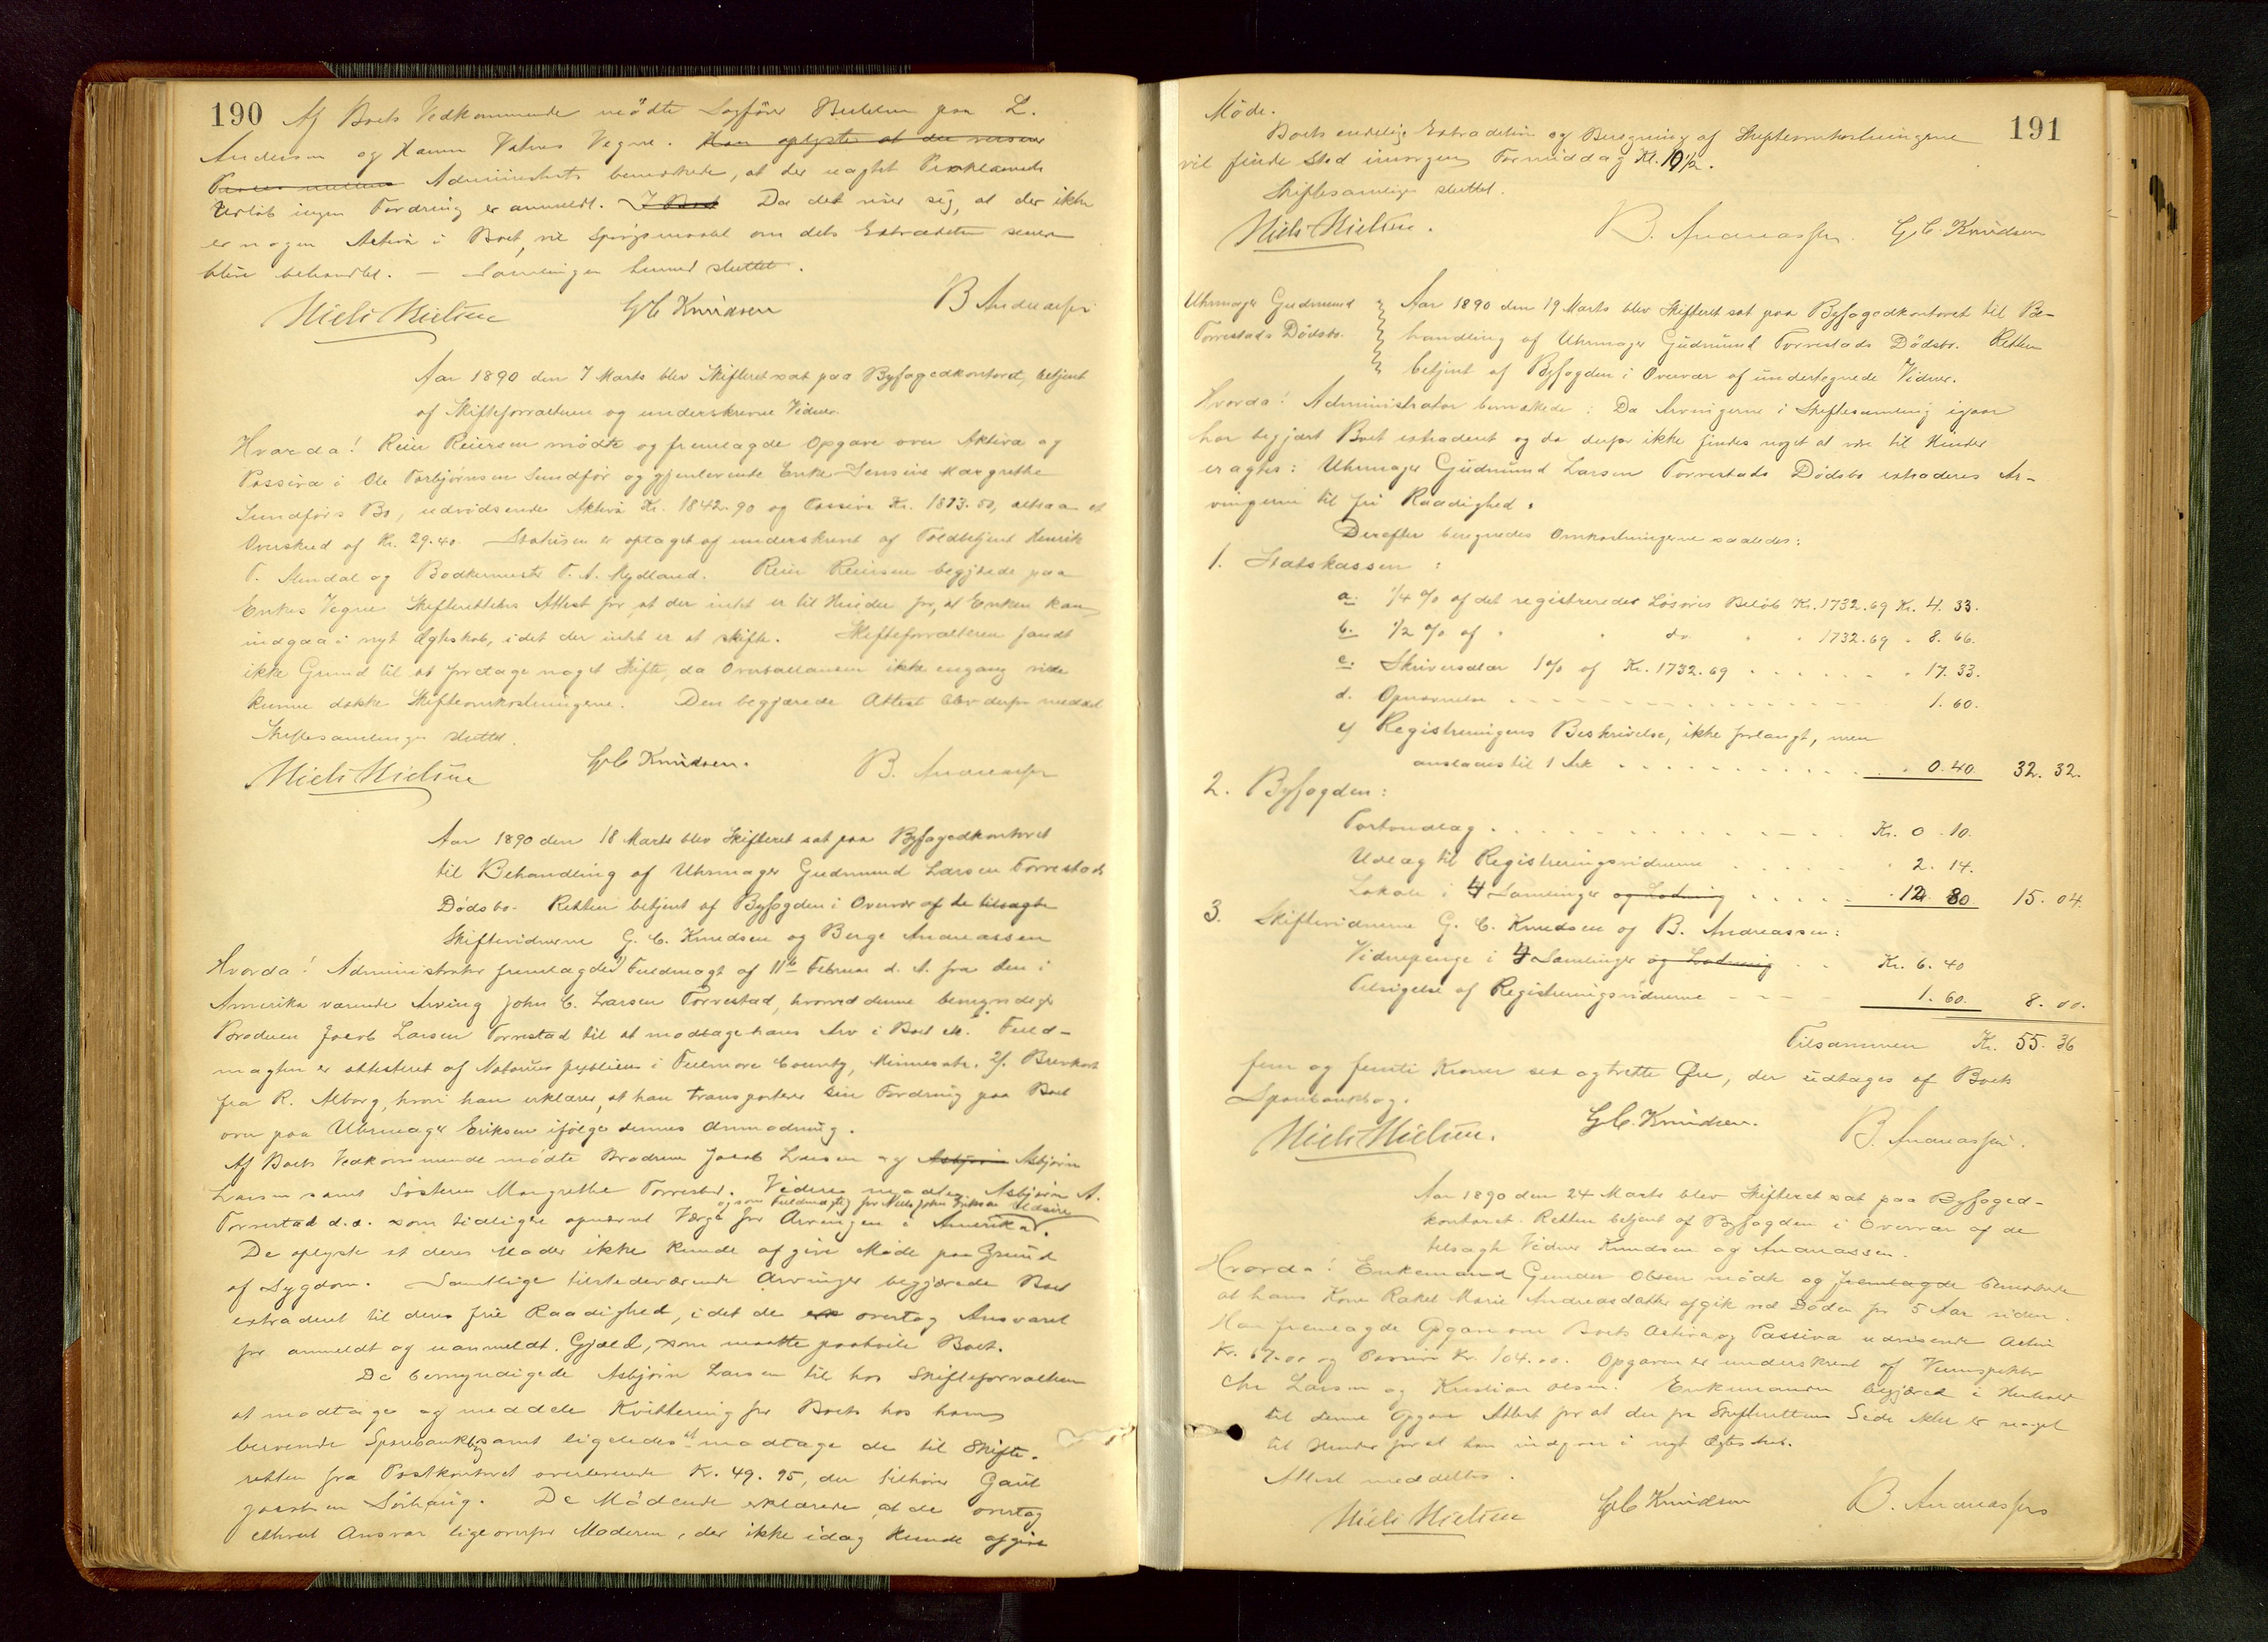 190
Af Boets Vedkommende mødte Sagfører paa L.
Andersen og Hanna Vegne. Han oplyste at der
Administrator bemærkede, at der uagtet Proklamets
Udløb ingen Fordring er anmeldt. I Boet Da det viser sig, at der ikke
er nogen Aktiva i Boet, vil Spørgsmaalet om dets Extradition senere
blive behandlet. — Samlingen hermed sluttet.
Niels Nielsen G C Knudsen B Andreassen
Aar 1890 den 7 Marts blev Skifteret sat paa Byfogedkontoret, betjent
af Skifteforvalteren og underskrevne Vidner.
Hvorda! Reier Reiersen mødte og fremlagde Opgave over Aktiva og
Passiva i Ole Torbjørnsen Sundfør og gjenlevende Enke Jensine Margrethe
Sundførs Bo, udvisende Aktiva Kr. 1842.90 og Passiva Kr. 1813.50, altsaa et
Overskud af Kr. 29.40. Status er optaget af underskrevet af Toldbetjent Henrik
T. og Bødkermester T. A. Mydland. Reier Reiersen begjærede paa
Enkes Vegne Skifterettens Attest for, at der intet er til Hinder for, at Enken kan
indgaa i nyt Ægteskab, idet der intet er at skifte. Skifteforvalteren fandt
ikke Grund til at foretage noget Skifte, da Overballancen ikke engang vilde
kunne dække Skifteomkostningerne. Den begjærede Attest blev derfor meddelt
Skiftesamlingen sluttet.
Niels Nielsen G C Knudsen. B. Andreassen
Aar 1890 den 18 Marts blev Skifteret sat paa Byfogedkontoret
til Behandling af Uhrmager Gudmund Larsen Torrestads
Dødsbo. Retten betjent af Byfogden i Overvær af de tilsagte
Skiftevidnerne G. C. Knudsen og Berge Andreassen
Hvorda! Administrator fremlagde 1) Fuldmagt af 11te Februar d. A. fra den i
Amerika værende Arving John C. Larsen Torrestad, hvorved denne bemyndiger
Broderen Jacob Larsen Torrestad til at modtage hans Arv i Boet etc. Fuld-
magten er attesteret af Notarius publicus i Fillmore County, Minnesota. 2/. Brevkort
fra R. Alborg, hvori han erklærer, at han transporterer sin Fordring paa Boet
over paa Uhrmager Eriksen ifølge dennes Anmodning.
Af Boets Vedkommende mødte Brødrene Jacob Larsen og Asbjørn Asbjørn
Larsen samt Søsteren Margrethe Torrestad. Videre mødte Asbjørn A.
og som Fuldmægtig for Niels John Eriksen Udsire
Torrestad d.æ. som tidligere opnævnt Værge for Arvingen i Amerika.
De oplyste at deres Moder ikke kunde afgive Møde paa Grund
af Sygdom. Samtlige tilstedeværende Arvinger begjærede Boet
extraderet til deres frie Raadighed, idet de overtog Ansvaret
for anmeldt og uanmeldt Gjæld, som maatte paahvile Boet.
De bemyndigede Asbjørn Larsen til hos Skifteforvalteren
at modtage og meddele Kvittering for Boets hos ham
beroende Sparebankbog samt ligeledes at modtage de til Skifte-
retten fra Postkontoret overleverede Kr. 49.95, der tilhører Gaut
Jacobsen Sørhaug. De Mødende erklærede, at de overtog
ethvert Ansvar ligeoverfor Moderen, der ikke idag kunde afgive
191
Møde.
Boets endelige Extradition og Beregning af Skifteomkostningerne
vil finde Sted imorgen Formiddag Kl. 10½.
Skiftesamlingen sluttet.
Niels Nielsen. B. Andreassen. G C Knudsen
Uhrmager Gudmund Torrestads Dødsbo.
Aar 1890 den 19 Marts blev Skifteret sat paa Byfogedkontoret til Be-
handling af Uhrmager Gudmund Torrestads Dødsbo. Retten
betjent af Byfogden i Overvær af undertegnede Vidner.
Hvorda! Administrator bemærkede: Da Arvingerne i Skiftesamling igaar
har begjært Boet extraderet og da derfor ikke findes noget at være til Hinder
eragtes: Uhrmager Gudmund Larsen Torrestads Dødsbo extraderes Ar-
vingerne til fri Raadighed.
Derefter beregnedes Omkostningerne saaledes:
1. Statskassen:
a. 1/4 % af det registrerede Løsøres Beløb Kr. 1732.69 Kr. 4.33.
b. 1/2 % af " " do. " " 1732.69 " 8.66.
c. Skriversalær 1% af Kr. 1732.69 . . . . . . " 17.33.
d. Opnævnelse . . . . . . . . . . 1.60.
e) Registreringens Beskrivelse, ikke forlangt, men
anslaaes til 1 Ark . . . . . . . . . . " 0.40 32.32.
2. Byfogden:
Portoudlæg . . . . . . . . . . Kr. 0.10.
Udlæg til Registreringsvidnerne . . . . . . " 2.14.
Lokale i 4 Samlinger og Lodning . . . . . " 12.80 15.04.
3. Skiftevidnerne G. C. Knudsen og B. Andreassen:
Vidnepenge i 4 Samlinger og Lodning . . Kr. 6.40
Tilsigelse af Registreringsvidnerne - - - 1.60. 8.00.
Tilsammen Kr. 55.36
fem og femti Kroner sex og trette Øre, der udtages af Boets
Sparebankbog.
Niels Nielsen. G C. Knudsen. B. Andreassen.
Aar 1890 den 24 Marts blev Skifteret sat paa Byfoged-
kontoret. Retten betjent af Byfogden i Overvær af de
tilsagte Vidner Knudsen og Andreassen.
Hvorda! Enkemand Gunder Olsen mødte og fremlagde bemærkede
at hans Kone Rakel Marie Andreasdatter afgik ved Døden for 5 Aar siden.
Han fremlagde Opgave over Boets Aktiva og Passiva udvisende Activa
Kr. 67.00 og Passiva Kr. 104.00. Opgaven er underskrevet af
Chr Larsen og Kristian Olsen. Enkemanden begjærede i Henhold
til denne Opgave Attest for at der fra Skifterettens Side ikke er noget
til Hinder for at han indgaar i nyt Ægteskab.
Attest meddeltes.
Niels Nielsen G C Knudsen B. Andreassen